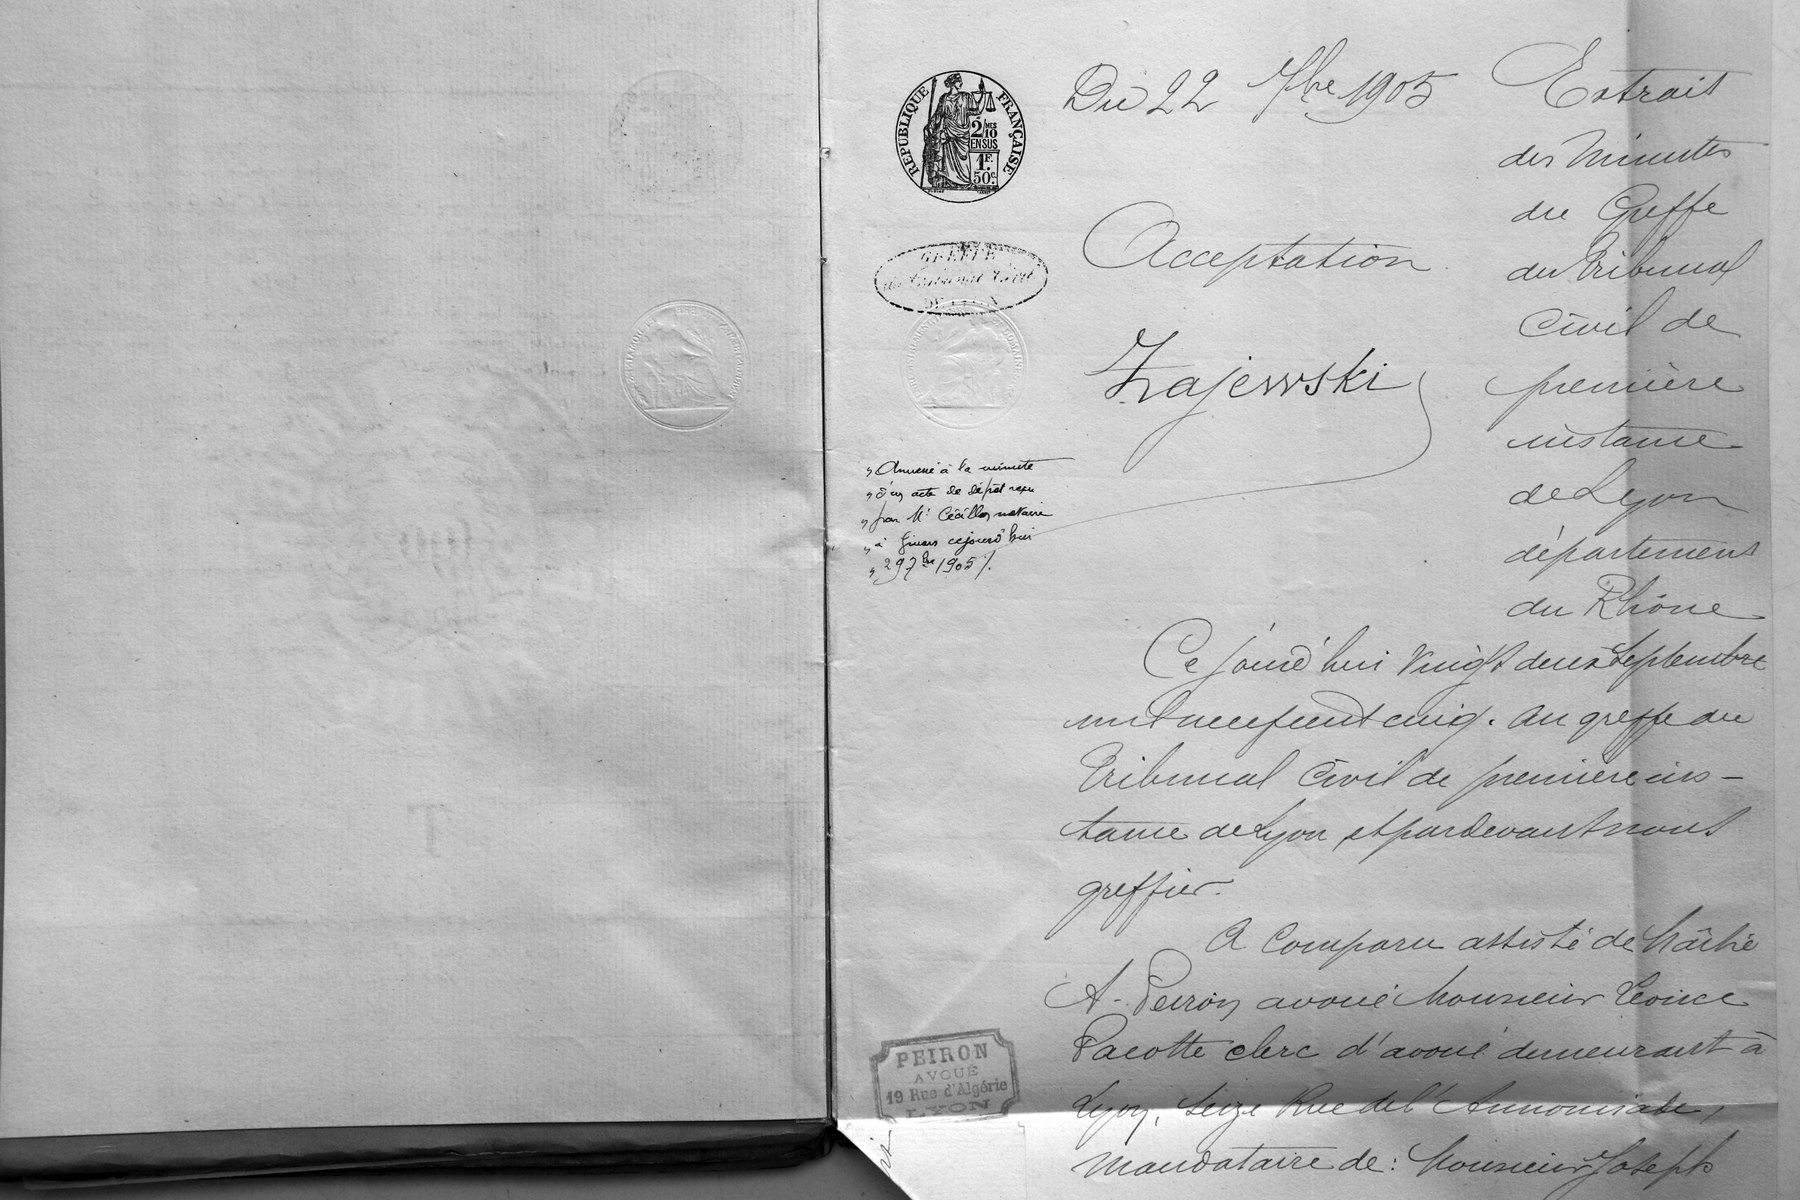 RÉPUBLIQUE FRANÇAISE
2/MES
10
EN SUS
1F.
50c.
GREFFE
du Tribunal Civil
DE LYON
Du 22 7bre 1905
Acceptation
Zrajewski
"Annexé à la minute
"d'un acte de dépôt reçu
"par Me Cécillon notaire
"à Givors cejourd'hui
"29 7bre 1905 /.
Extrait
des Minutes
du Greffe
du Tribunal
Civil de
première
instance
de Lyon
département
du Rhône
Ce jourd'hui vingt deux Septembre
mil neuf cent cinq. Au greffe du
Tribunal Civil de première ins-
tance de Lyon, et pardevant nous
greffier.
A Comparu assisté de Maître
A. Peiron avoué Monsieur Léonce
Pacotte clerc d'avoué demeurant à
Lyon, seize Rue de l'Annonciade,
Mandataire de: Monsieur Joseph
PEIRON
AVOUÉ
19 Rue d'Algérie
LYON